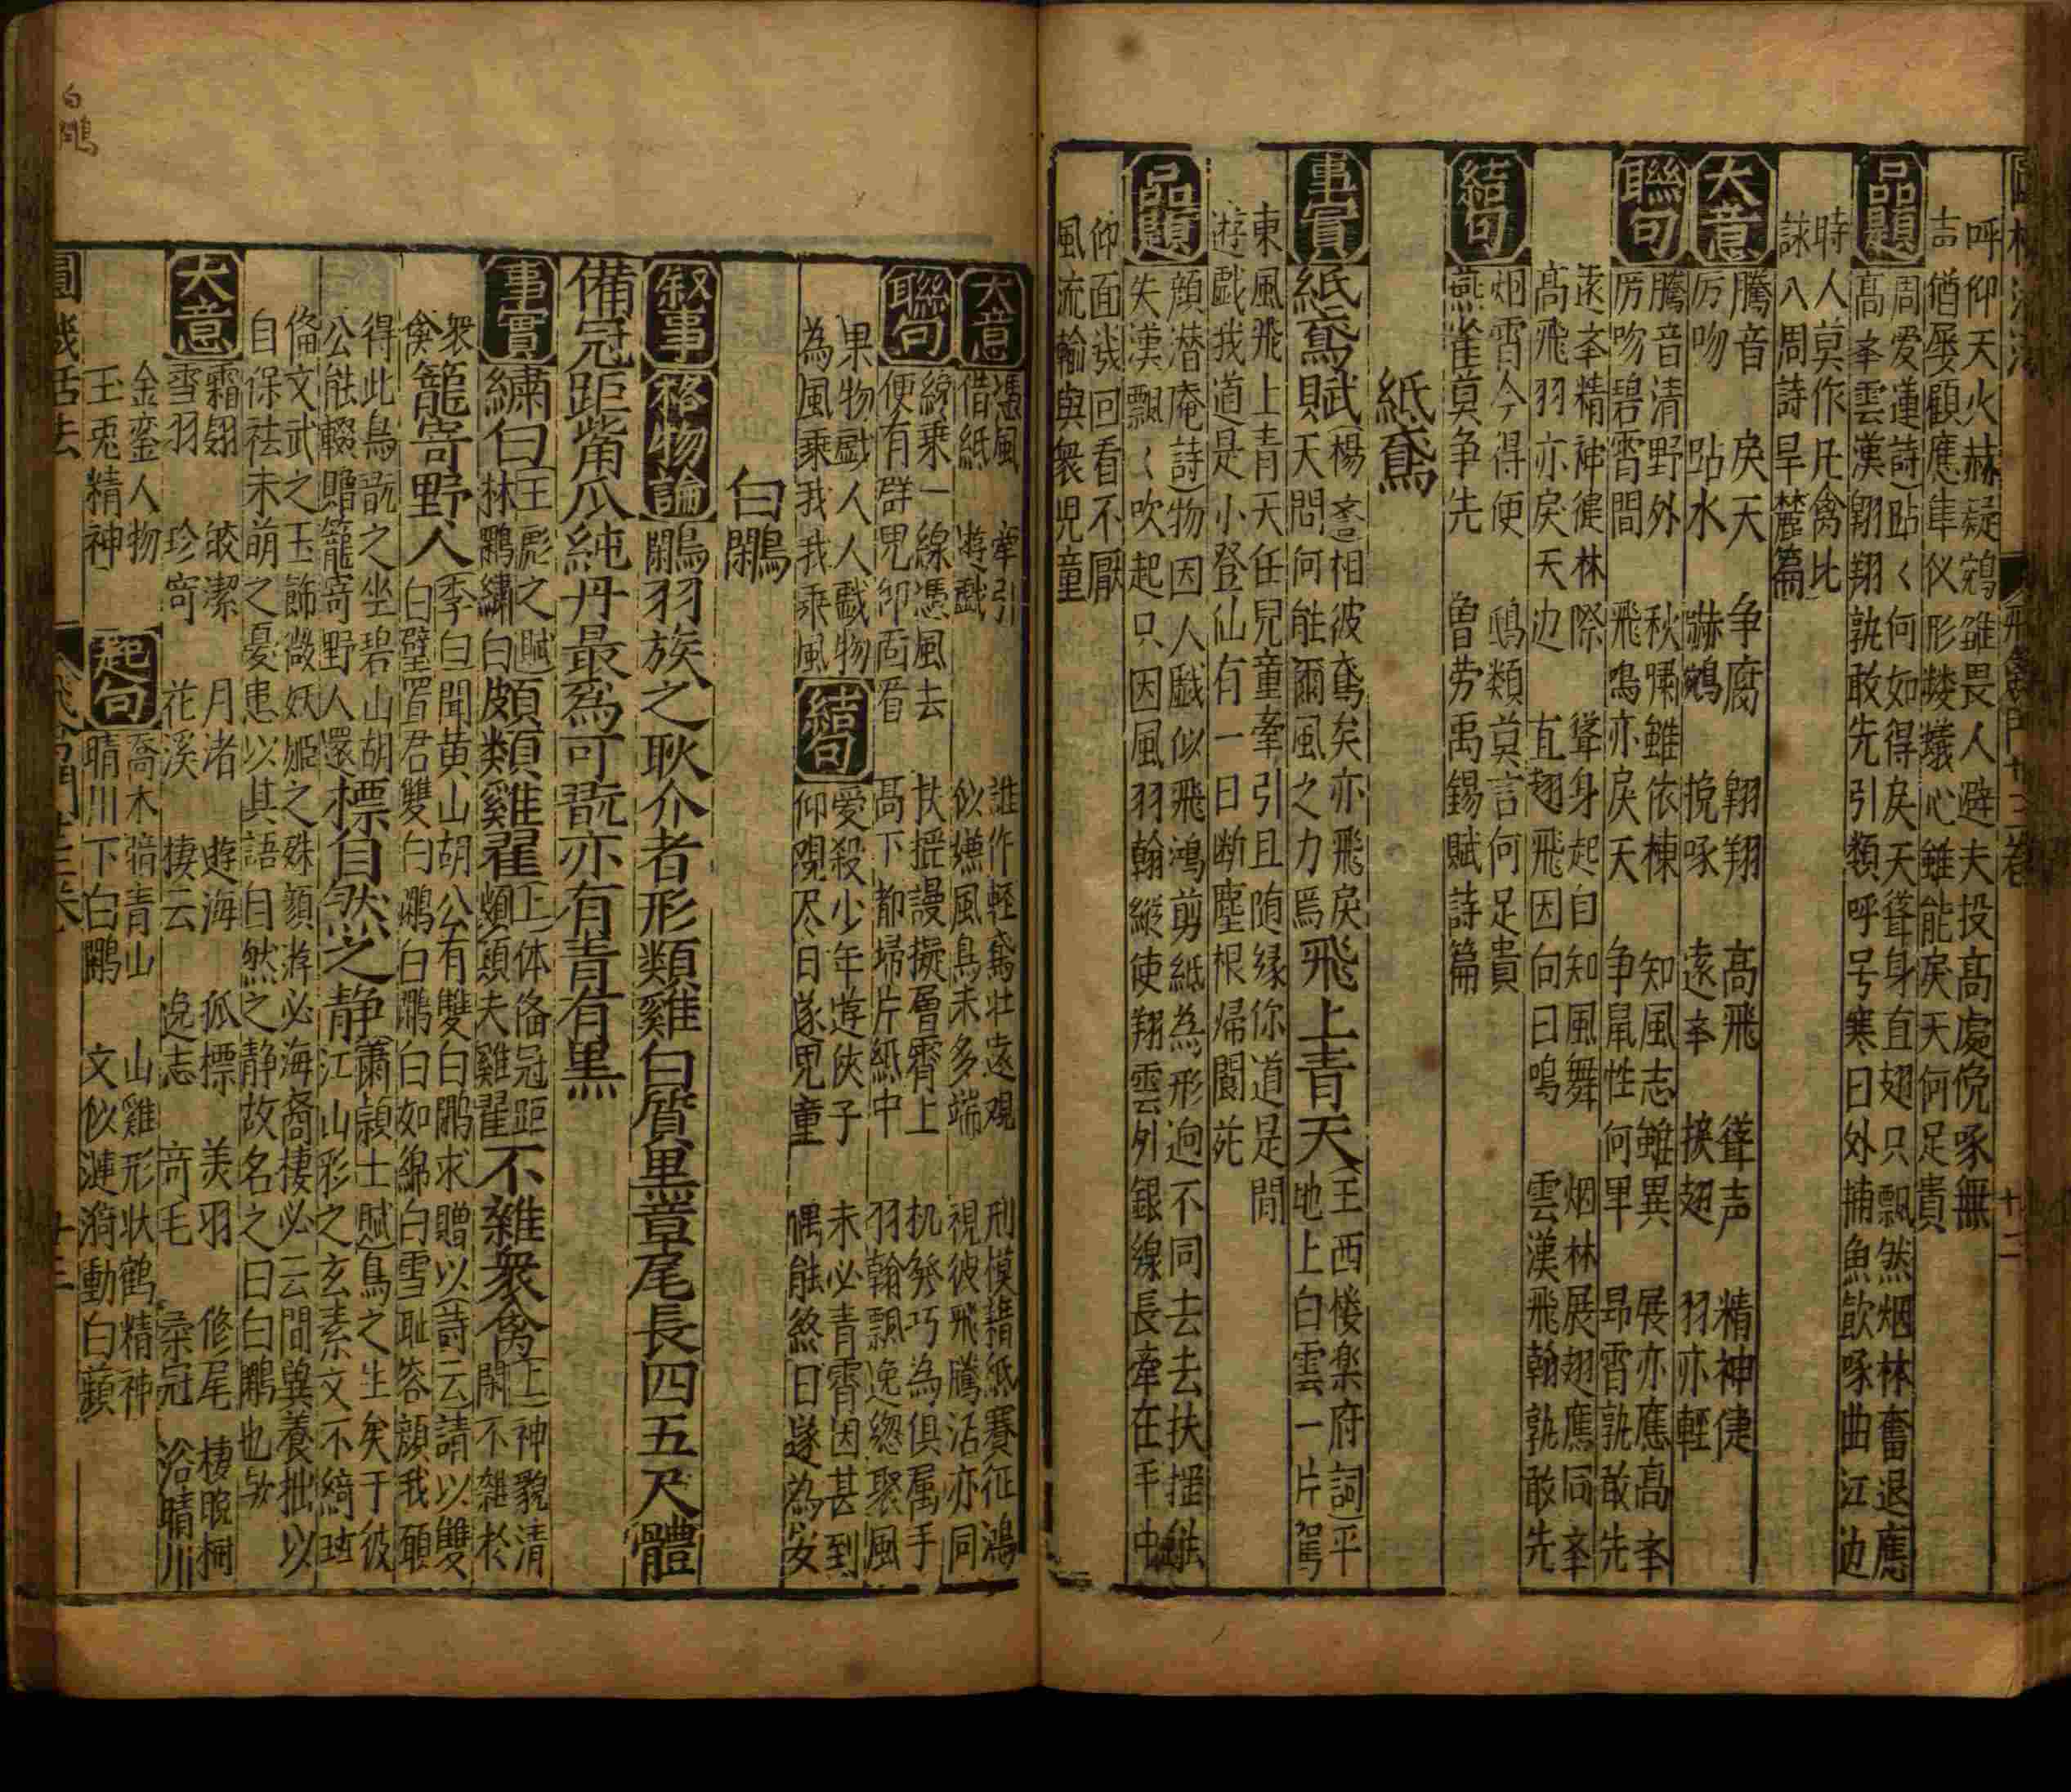 呼仰天火赫疑鵷雖畏人避夫投高處俛啄無
声猶屡顧應隼仪形髅蟻心雖能戾天何足貴
品題
周爱蓮詩跕〻何如得戾天聳身直翅只飄然烟林奮退應
高夆雲漢翱翔孰敢先引類呼号寒日外捕魚飲啄曲江边
時人莫作凡禽比
詠八周詩旱麓篇
大意
騰音 戾天 争腐 翱翔 高飛 聳声 精神健
厉吻 跕水 嚇鵷 挽啄 遠夆 挨翅 羽亦輕
聯句
騰音清野外 秋嘯雖依棟 知風志雖異 展亦應高夆
厉吻碧霄間 飛鳴亦戾天 争鼠性何卑 昂霄孰敢先
遠夆精神健林際 聳身起自知風舞 烟林展翅應同夆
高飛羽亦戾天边 直翅飛因向日鳴 雲漢飛翰孰敢先
結句
烟霄今得便 鴟類莫言何足貴
燕雀莫争先 曽劳禹錫賦詩篇
紙鳶
事實
紙鳶賦
楊 相彼鳶矣亦飛戾
天問何能爾風之力焉
飛上青天
王西楼楽府詞平
地上白雲一片駕
東風飛上青天任兒童牽引且随缘你道是間
遊戯我道是小登仙有一日断塵根帰閬苑
品題
顔潜庵詩物因人戯似飛鴻剪紙為形逈不同去去扶揺虽
失漢飄〻吹起只因風羽翰縱使翔雲外銀線長牽在手中
仰面幾回看不厭
風流輸與衆児童
大意
憑風 牽引 誰作軽鳶壮遠观 刑模藉紙賽征鴻
借紙 遊戯 似嫌風鳥未多端 視彼飛騰活亦同
聯句
綂乘一線憑風去 扶揺謾擬層霄上 机発巧為俱属手
便有群児仰面看 高下都掃片紙中 羽翰飄逸緫聚風
果物戯人人戯物
為風乘我我乘風
結句
愛殺少年遊侠子 未必青霄因甚到
仰覌尽日逐児童 偶能終日遂為安
白鷴
叙事
格物論
鷴羽族之耿介者形類雞白質黒章尾長四五尺體
備冠距觜爪純丹最為可翫亦有青有黒
事實
繍白
王彪之賦
林鷴繍白
頗類雞翟
上体俻冠距
頗類夫雞翟
不雜衆禽
上神貌清
閑不雜於
衆
禽
籠寄野人
李白聞黄山胡公有雙白鷴求贈以詩云請以雙
白璧買君雙白鷴白鷴白如綿白雪耻容顔我願
得此鳥翫之坐碧山胡
公能輟贈籠寄野人還
標自然之静
蕭頴士賦鳥之生矣于彼
江山彩之玄素文不綺琱
俻文武之玉飾微妖姬之姝顔游必海裔棲必云間異養拙以
自保袪未萌之憂患以其語曰自然之静故名之曰白鷴也欤
大意
霜翎 皎潔 月渚 遊海 孤標 美羽 修尾 棲晚樹
雪羽 珍奇 花溪 棲云 逸志 奇毛 柔冠 浴晴川
金銮人物
玉兎精神
起句
喬木暗青山 山雞形状鹤精神
晴川下白鷴 文似漣漪動白蘋
白鷴